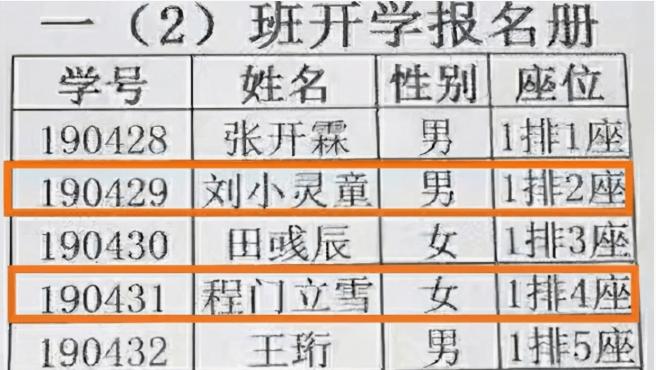 一（2）班开学报名册
学号 姓名 性别 座位
190428 张开霖 男 1排1座
190429 刘小灵童 男 1排2座
190430 田彧辰 女 1排3座
190431 程门立雪 女 1排4座
190432 王珩 男 1排5座